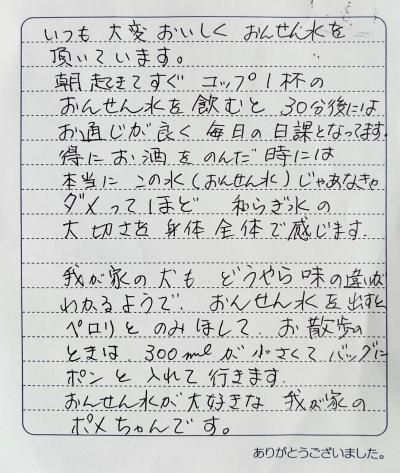 いつも 大変 おいしく おんせん水を
頂いて います。
朝 起きて すぐ コップ1杯の
おんせん水を 飲むと 30分後には
お通じが良く 毎日の日課となってます。
得に お酒を のんだ時には
本当に この水(おんせん水)じゃあなきゃ
ダメって1ほど 和らぎ水の
大切さを 身体全体で感じます.
我が家の犬も どうやら味の違いが
わかるようで、おんせん水を出すと
ペロリと のみほして、お散歩の
ときは、300mlが 小さくて バッグに
ポンと 入れて 行きます.
おんせん水が 大好きな 我が家の
ポメちゃんです。
ありがとうございました。